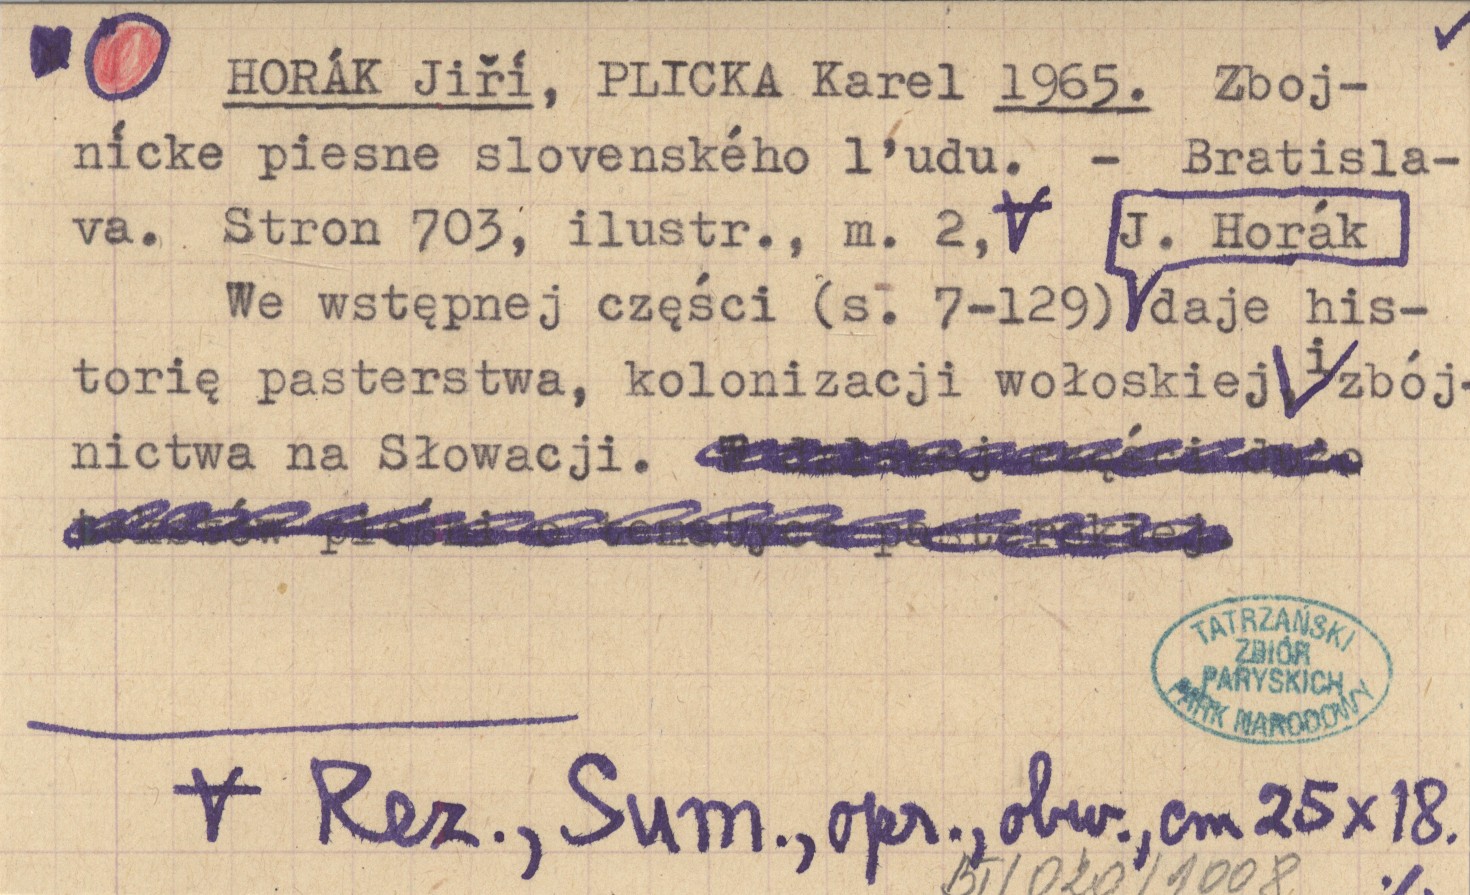 HORÁK Jiří, PLICKA Karel 1965. Zboj-
nícke piesne slovenského l'udu. - Bratisla-
va. Stron 703, ilustr., m. 2, ∀ J. Horák
We wstępnej części (s. 7-129) daje his-
torię pasterstwa, kolonizacji wołoskiej i zbój-
nictwa na Słowacji.
pieśni o tematyce pasterskiej.
TATRZAŃSKI
ZBIÓR
PARYSKICH
PARK NARODOWY
∀ Rez., Sum., opr., obw., cm 25 x 18.
BI/020/1008 ·/.